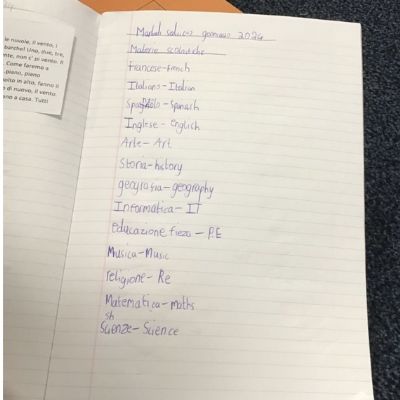 le nuvole, il vento, i
barche! Uno, due, tre,
ente, non c' più vento. Il
. Come faremo a
-piano, piano
molto in alto, fanno il
o di nuovo, il vento
ano a casa. Tutti
gennaio 2024
Materie scolastiche
francese-french
Italiano - Italian
Spagnolo - Spanish
Inglese - english
Arte - Art
Storia-history
geografia - geography
Informatica - IT
educazione - P.E
Musica - Music
religione - Re
Matematica - maths
sh
Scienze - Science